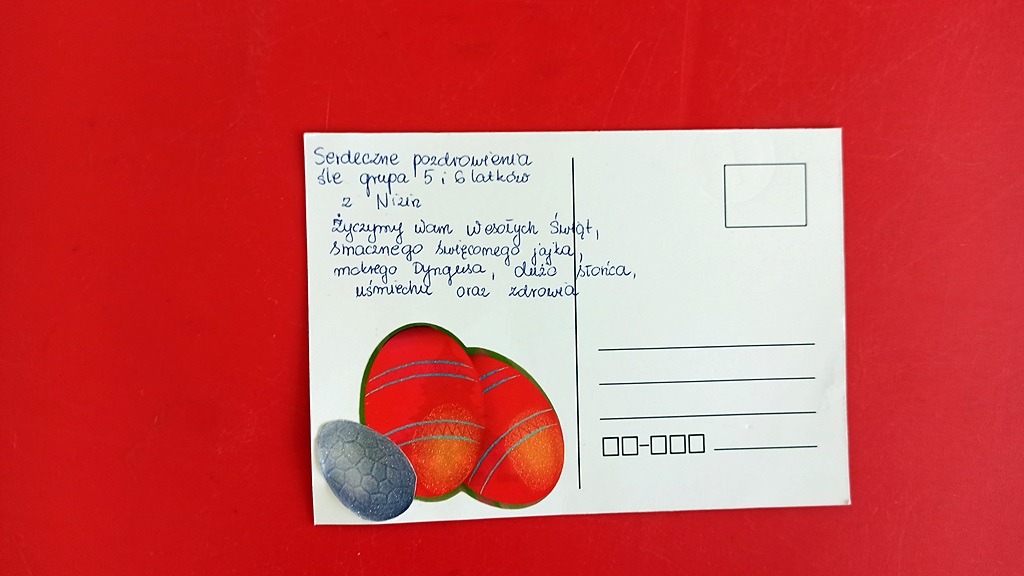 Serdeczne pozdrowienia
śle grupa 5 i 6 latków
z Nizin
Życzymy Wam Wesołych Świąt,
smacznego święconego jajka,
mokrego Dyngusa, dużo słońca,
uśmiechu oraz zdrowia